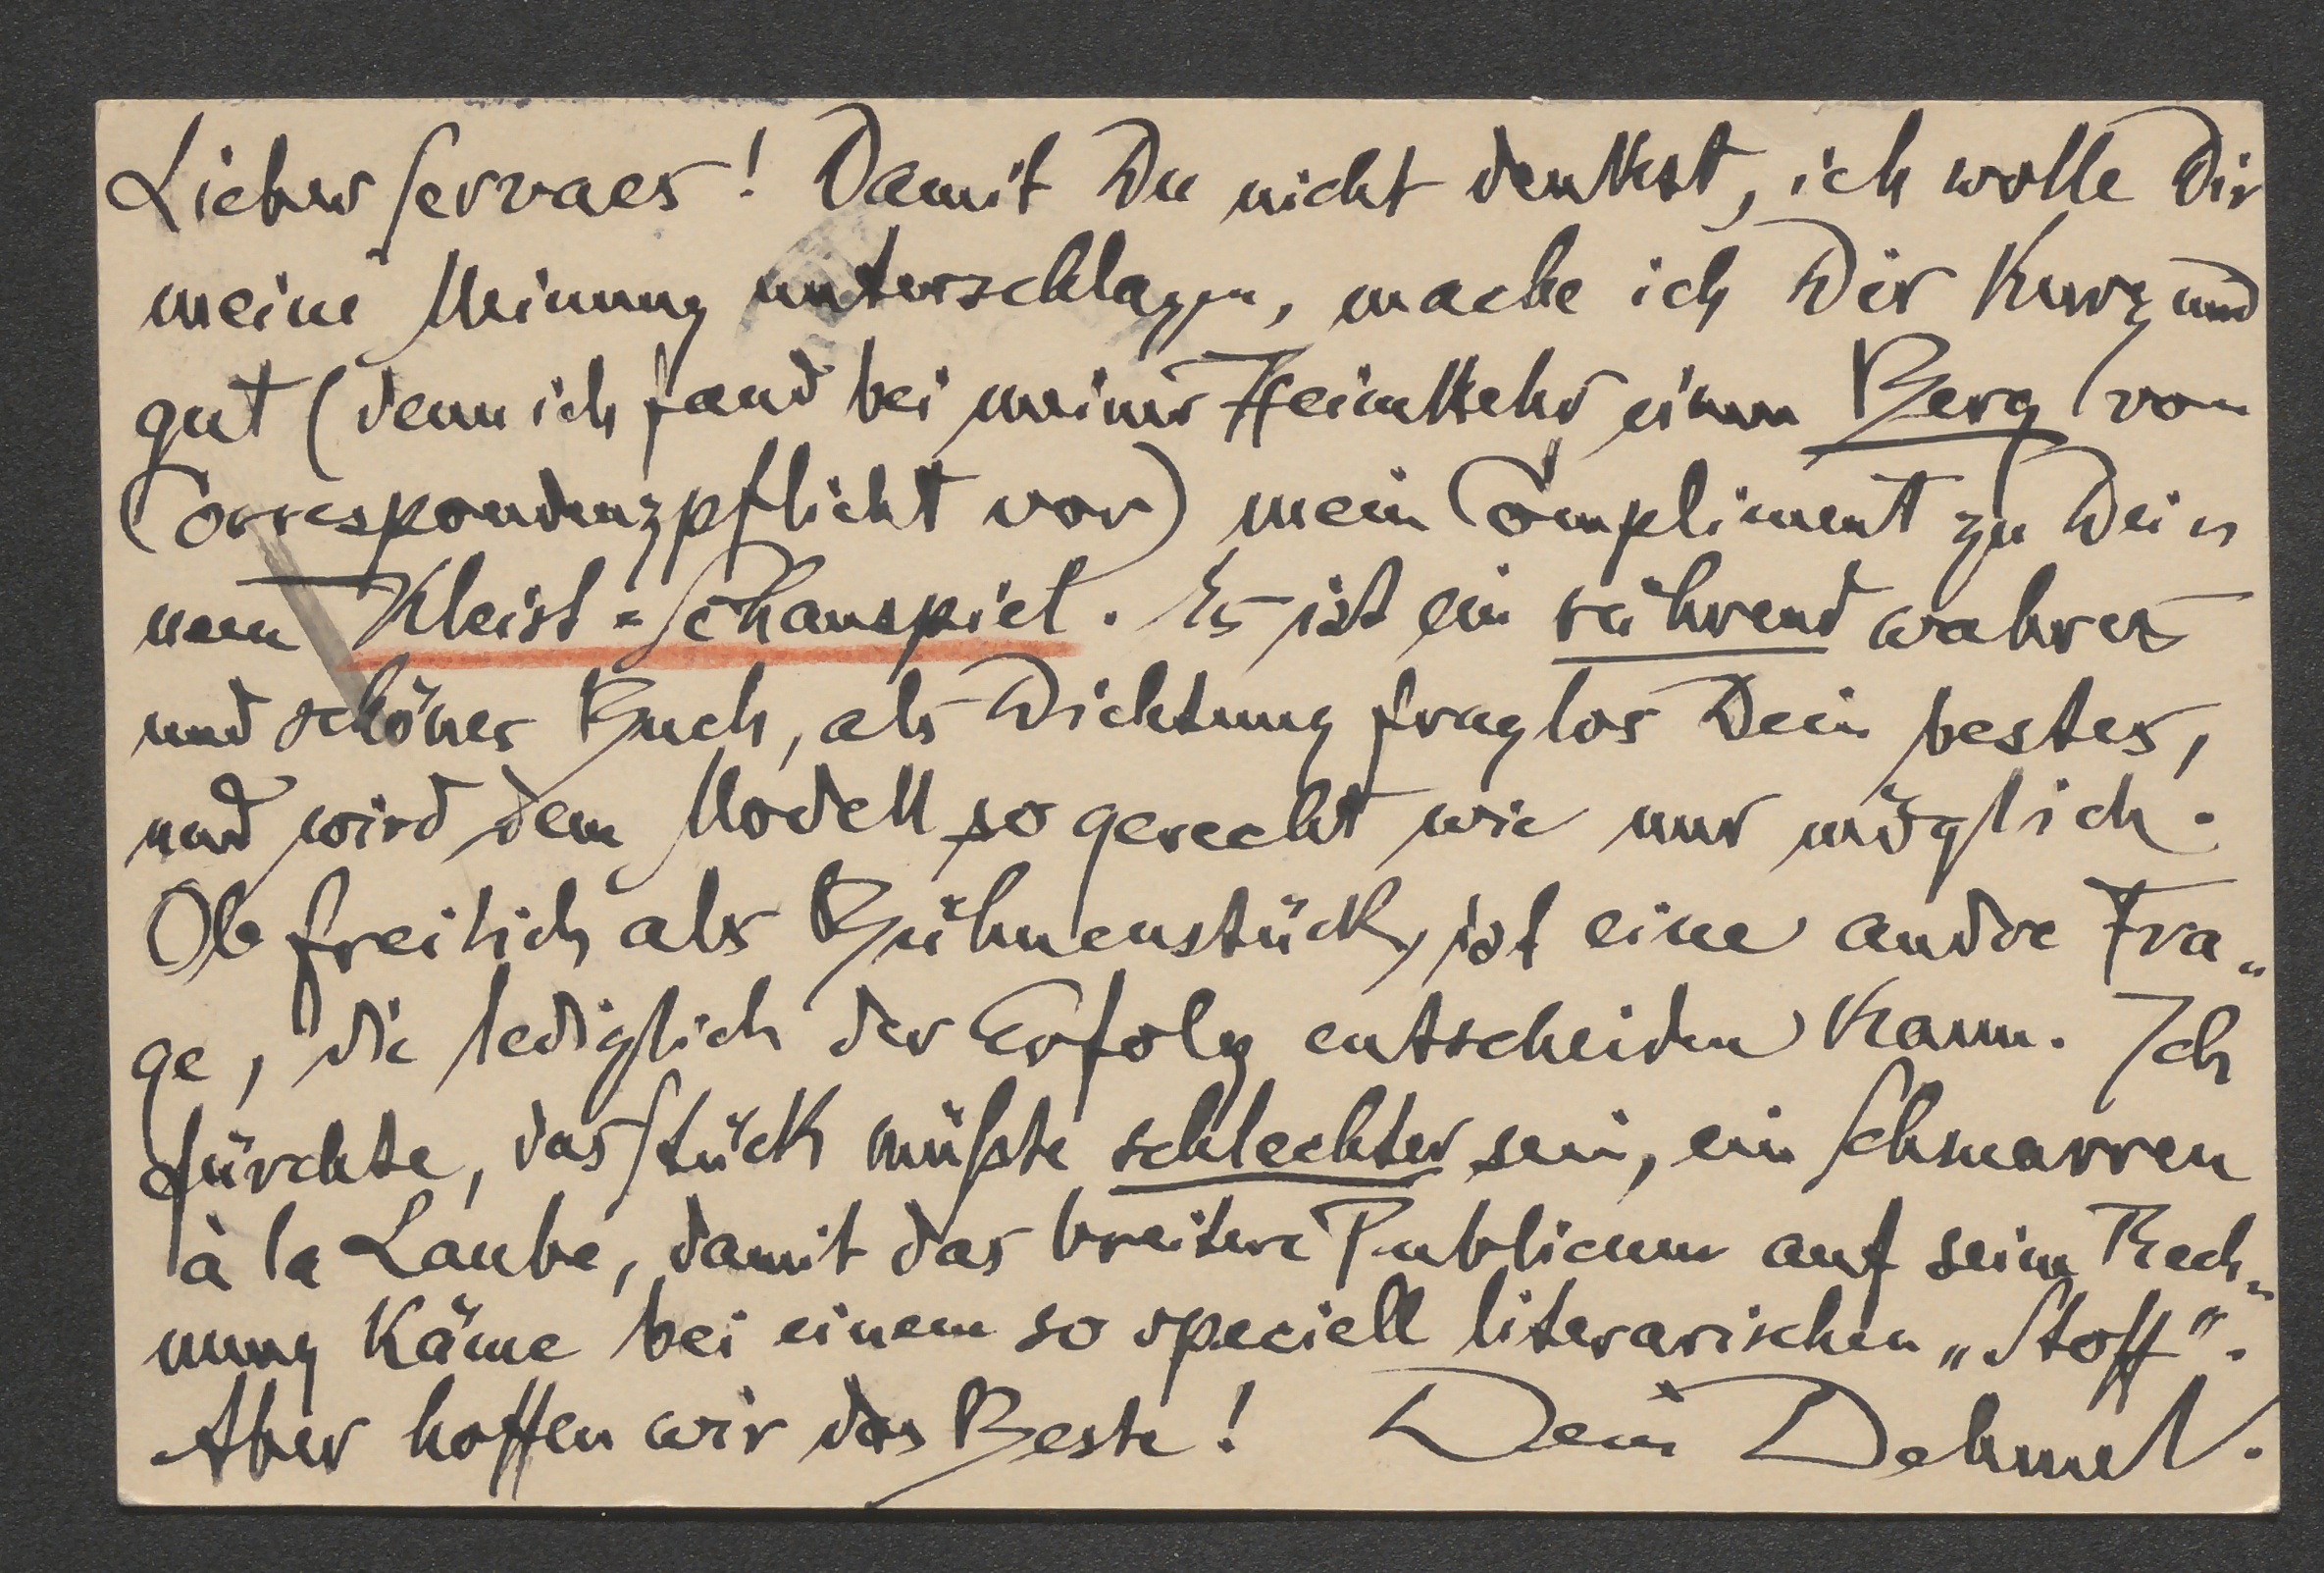 Lieber Servaes! Damit Du nicht denkst, ich wolle Dir
meine Meinung unterschlagen, mache ich Dir kurz und
gut (denn ich fand bei meiner Heimkehr einen Berg von
Correspondenzpflicht vor) mein Compliment zu Dei-
nem Kleist-Schauspiel. Es ist ein rührend wahres
und schönes Buch, als Dichtung fraglos Dein bestes,
und wird dem Modell so gerecht wie nur möglich.
Ob freilich als Bühnenstück, ist eine andre Fra-
ge, die lediglich der Erfolg entscheiden kann. Ich
fürchte, das Stück müßte schlechter sein, ein Schmarren
à la Laube, damit das breitere Publicum auf seine Rech-
nung käme bei einem so speciell literarischen „Stoff“.
Aber hoffen wir das Beste! Dein Dehmel.